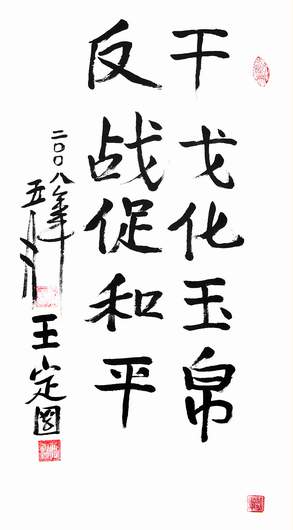 干戈化玉帛
反战促和平
二〇〇八年五月
王定国